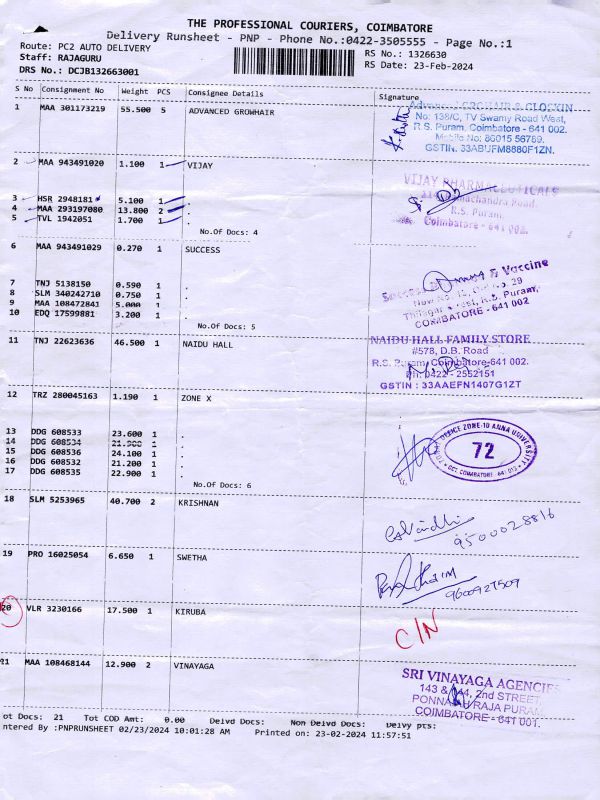 THE PROFESSIONAL COURIERS, COIMBATORE
Delivery Runsheet - PNP - Phone No.:0422-3505555 - Page No.:1
Route: PC2 AUTO DELIVERY RS No.: 1326630
Staff: RAJAGURU RS Date: 23-Feb-2024
DRS No.: DCJB132663001
S No Consignment No Weight PCS Consignee Details Signature
1 MAA 301173219 55.500 5 ADVANCED GROWHAIR
No: 138/C, TV Swamy Road West,
R.S. Puram, Coimbatore - 641 002.
Mobile No: 86015 56789.
GSTIN. 33ABUFM8880F1ZN.
2 MAA 943491020 1.100 1 VIJAY
VIJAY PHARMACEUTICALS
R.S. Puram,
Coimbatore - 641 002.
3 HSR 2948181 5.100 1 .
4 MAA 293197080 13.800 2 .
5 TVL 1942051 1.700 1 .
No.Of Docs: 4
6 MAA 943491029 0.270 1 SUCCESS
& Vaccine
R.S. Puram,
COIMBATORE - 641 002
7 TNJ 5138150 0.590 1 .
8 SLM 340242710 0.750 1 .
9 MAA 108472841 5.000 1 .
10 EDQ 17599881 3.200 1 .
No.Of Docs: 5
11 TNJ 22623636 46.500 1 NAIDU HALL
NAIDU HALL FAMILY STORE
#578, D.B. Road
R.S. Puram, Coimbatore-641 002.
Ph: 0422 - 2552151
GSTIN : 33AAEFN1407G1ZT
12 TRZ 280045163 1.190 1 ZONE X
OFFICE ZONE-10 ANNA UNIVERSITY
72
GCT, COIMBATORE - 641 013
13 DDG 608533 23.600 1 .
14 DDG 608534 21.900 1 .
15 DDG 608536 24.100 1 .
16 DDG 608532 21.200 1 .
17 DDG 608535 22.900 1 .
No.Of Docs: 6
18 SLM 5253965 40.700 2 KRISHNAN
9500028816
19 PRO 16025054 6.650 1 SWETHA
9600927509
20 VLR 3230166 17.500 1 KIRUBA
C/N
21 MAA 108468144 12.900 2 VINAYAGA
SRI VINAYAGA AGENCIES
143 & 144, 2nd STREET,
PONNAIYARAJA PURAM
COIMBATORE - 641 001.
ot Docs: 21 Tot COD Amt: 0.00 Delvd Docs: Non Delvd Docs: Delvry pts:
ntered By :PNPRUNSHEET 02/23/2024 10:01:28 AM Printed on: 23-02-2024 11:57:51